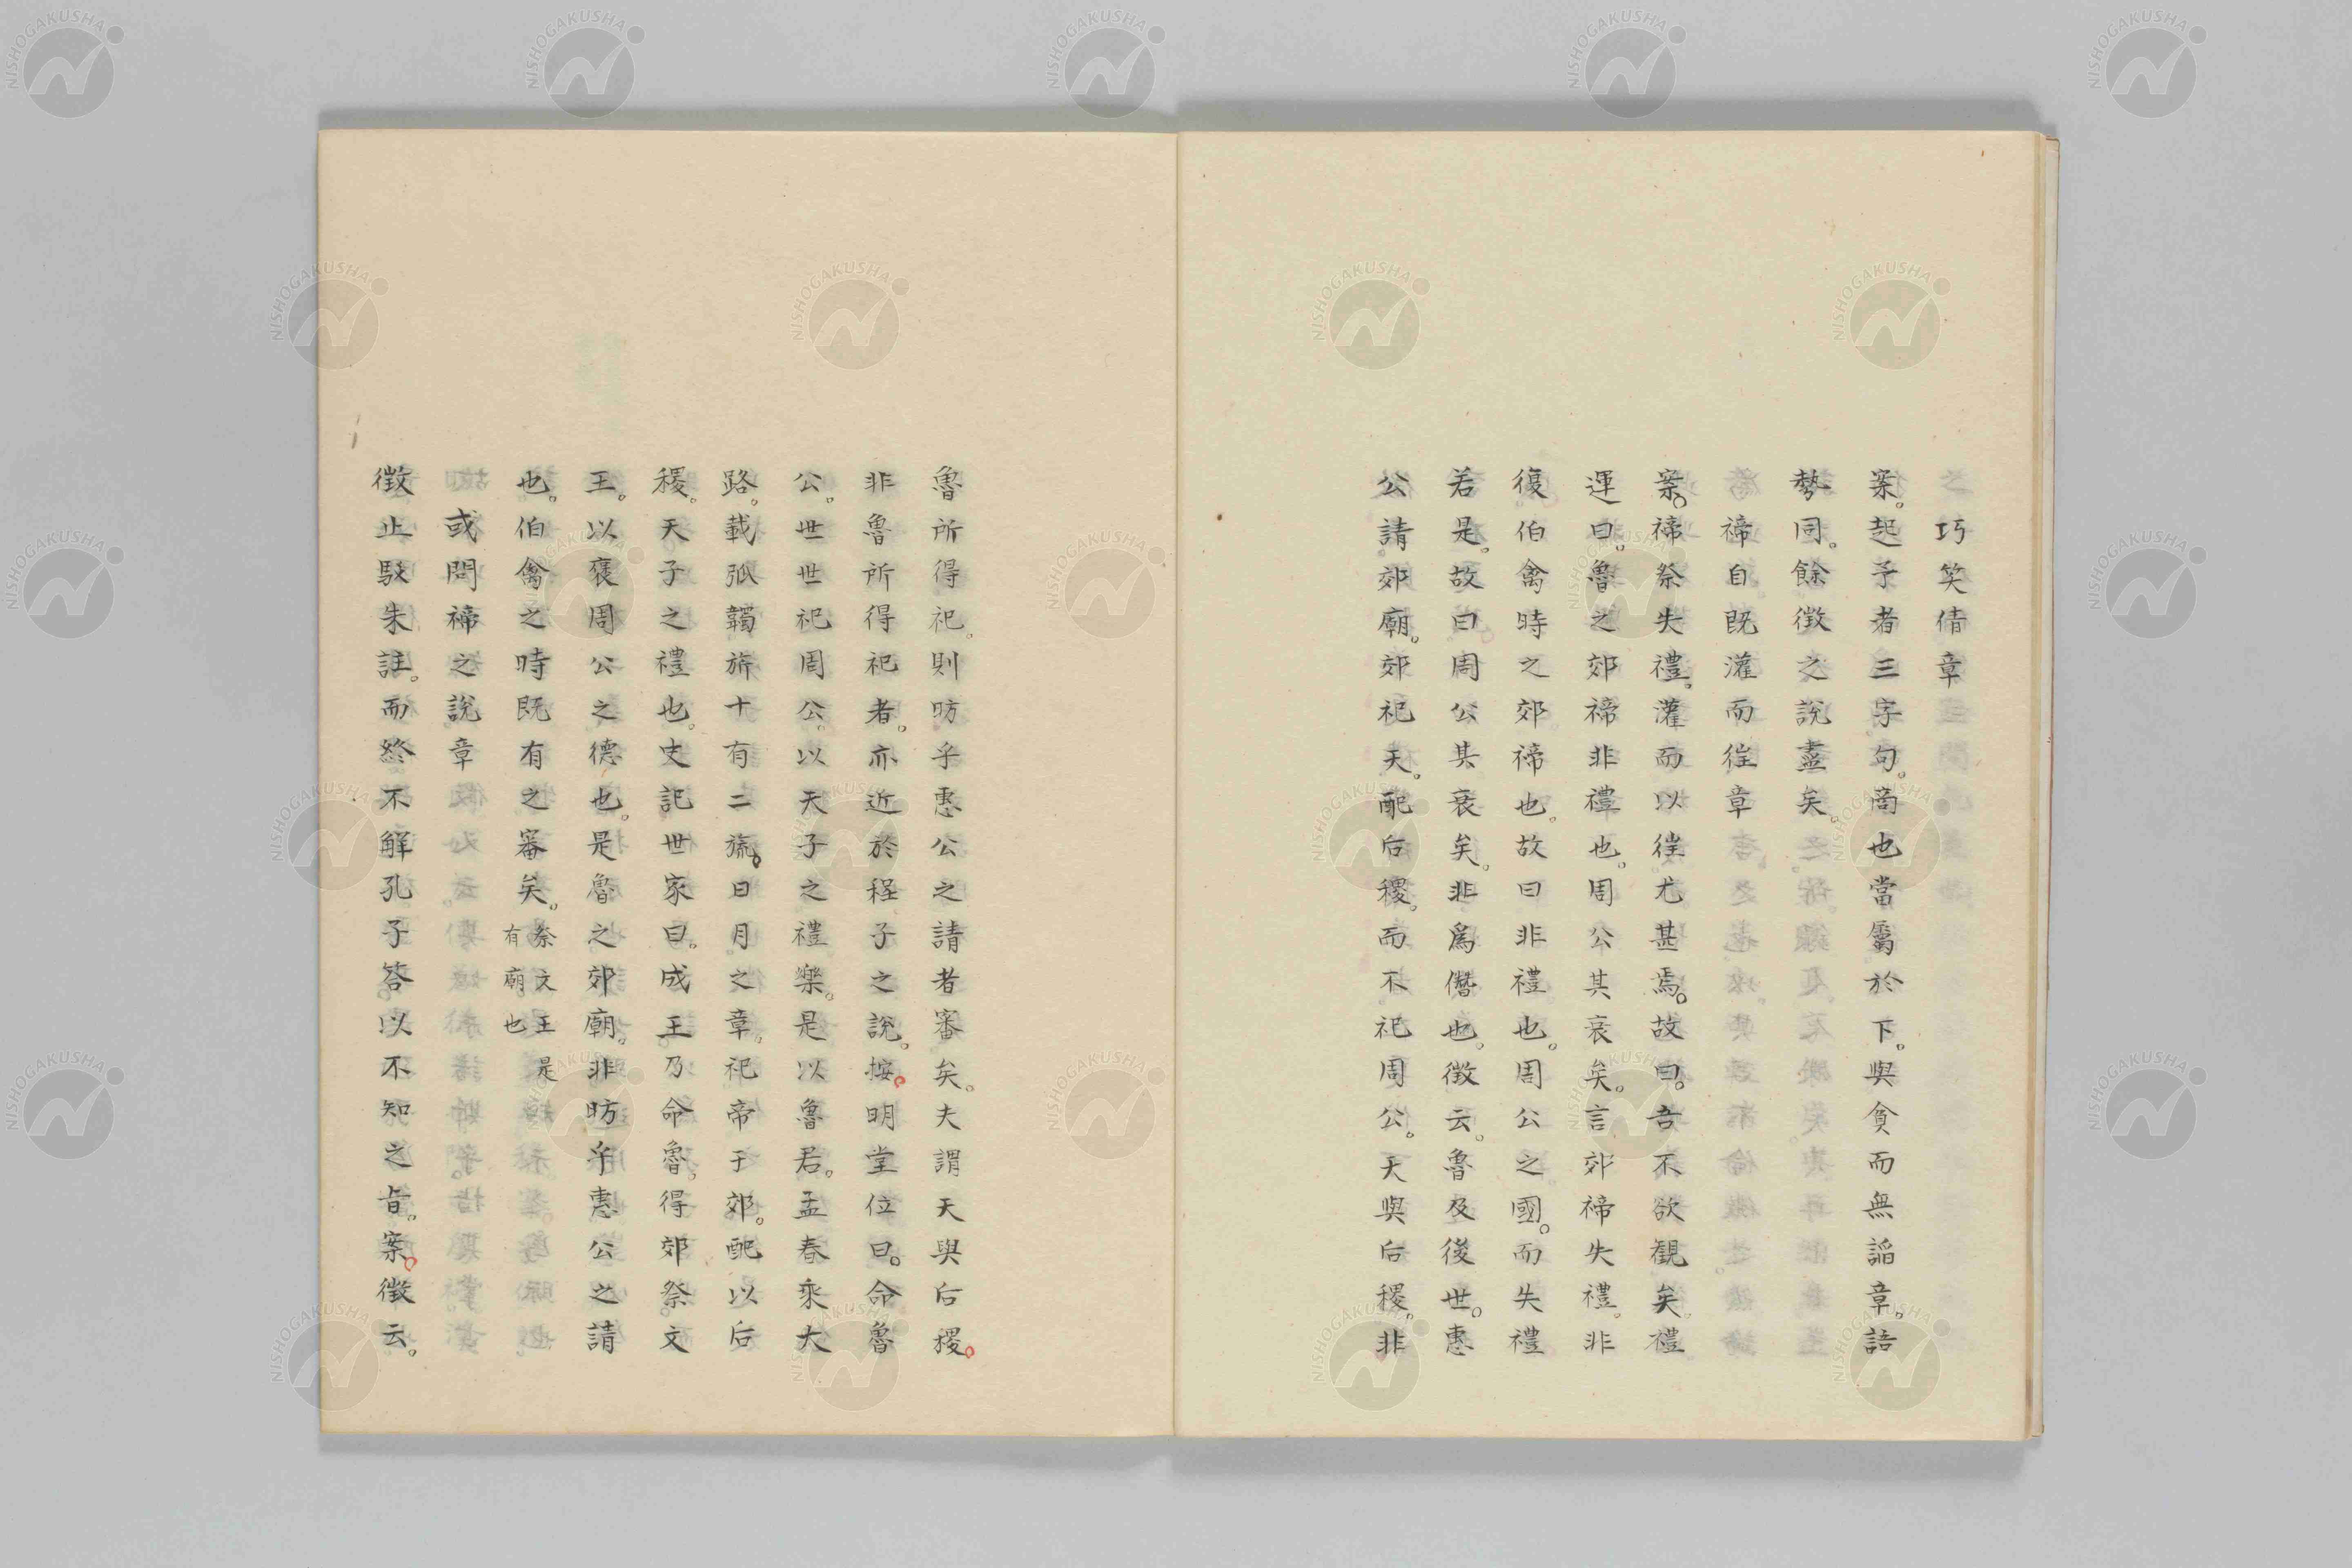 巧笑倩章
案。起予者三字句。商也當屬於下。與貧而無謟章。語
勢同。餘徴之說盡矣。
禘自既灌而徃章
案。禘祭失禮。灌而以徃尤甚焉。故曰。吾不欲観矣。禮
運曰。魯之郊禘非禮也。周公其衰矣。言郊禘失禮。非
復伯禽時之郊禘也。故曰非禮也。周公之國。而失禮
若是。故曰周公其衰矣。非爲僭也。徴云。魯及後世。惠
公請。郊廟。郊祀天。配后稷。而不祀周公。天與后稷。非
魯所得祀。則昉乎惠公之請者審矣。夫謂天與后稷。
非魯所得祀者。亦近於程子之說。按。明堂位曰。命魯
公。世世祀周公。以天子之禮樂。是以魯君。孟春乘大
路。載弧韣旂十有二旒。日月之章。祀帝于郊。配以后
稷。天子之禮也。史記世家曰。成王乃命魯。得郊祭文
王。以褒周公之德也。是魯之郊廟。非昉乎惠公之請
也。伯禽之時既有之審矣。祭文王是
有廟也
或問禘之說章
徴止駁朱註。而終不解孔子答以不知之旨。案。徴云。